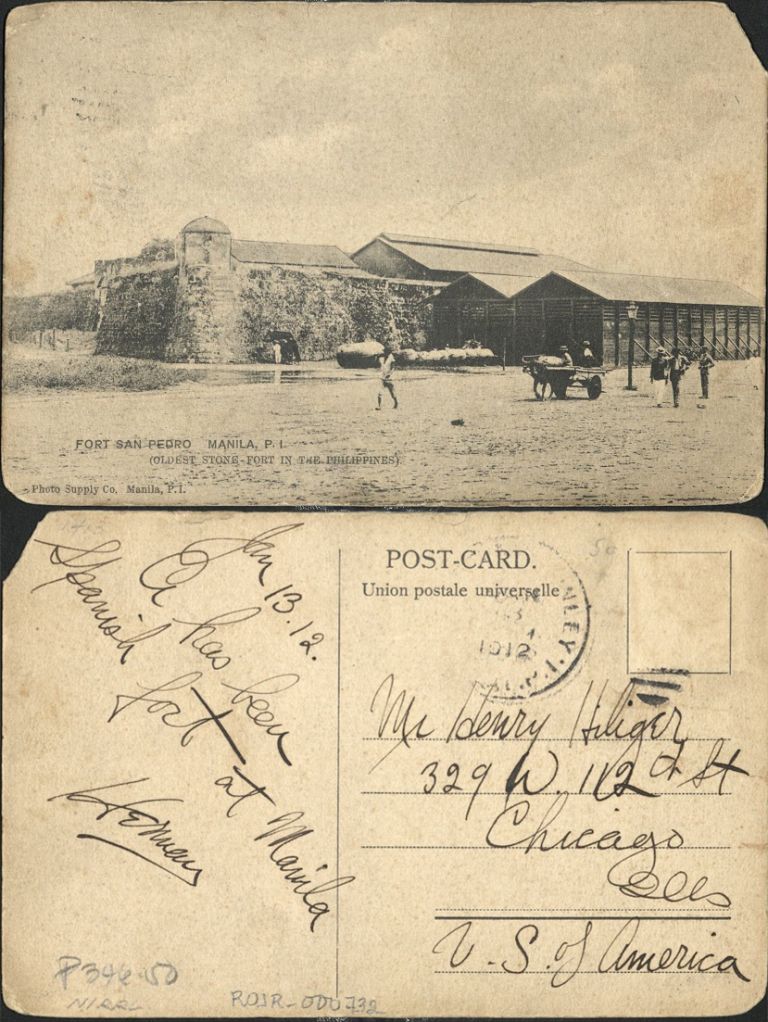 FORT SAN PEDRO MANILA, P. I.
(OLDEST STONE-FORT IN THE PHILIPPINES)
Photo Supply Co. Manila, P.I.
Jan 13.12.
A has been
Spanish
fort at Manila
Herman
POST-CARD.
Union postale universelle
1912
Mr Henry Hiliger
329 W. 112 St
Chicago
Ills
U.S. of America
P346.50
ROJR-000732